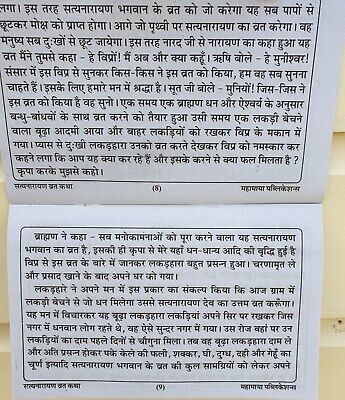 लगा। इस तरह सत्यनारायण भगवान के व्रत को जो करेगा यह सब पापों से
छूटकर मोक्ष को प्राप्त होगा। आगे जो पृथ्वी पर सत्यनारायण का व्रत करेगा। वह
मनुष्य सब दुःखों से छूट जायेगा। इस तरह नारद जी से नारायण का कहा हुआ यह
व्रत मैंने तुमसे कहा - हे विप्रों! मैं अब और क्या कहूँ। ऋषि बोले - हे मुनीश्वर!
संसार में इस विप्र से सुनकर किस-किस ने इस व्रत को किया, हम वह सब सुनना
चाहते हैं। इसके लिए हमारे मन में श्रद्धा है। सूत जी बोले - मुनियों! जिस-जिस ने
इस व्रत को किया है वह सुनो। एक समय एक ब्राह्मण धन और ऐश्वर्य के अनुसार
बन्धु-बांधवों के साथ व्रत करने को तैयार हुआ उसी समय एक लकड़ी बेचने
वाला बूढ़ा आदमी आया और बाहर लकड़ियों को रखकर विप्र के मकान में
गया। प्यास से दुःखी लकड़हारा उनको व्रत करते देखकर विप्र को नमस्कार कर
कहने लगा कि आप यह क्या कर रहे हैं और इसके करने से क्या फल मिलता है ?
कृपा करके मुझसे कहो।
सत्यनारायण व्रत कथा (8) महामाया पब्लिकेशन्स
ब्राह्मण ने कहा - सब मनोकामनाओं को पूरा करने वाला यह सत्यनारायण
भगवान का व्रत है, इसकी ही कृपा से मेरे यहाँ धन-धान्य आदि की बृद्धि हुई है
विप्र से इस व्रत के बारे में जानकर लकड़हारा बहुत प्रसन्न हुआ। चरणामृत ले
और प्रसाद खाने के बाद अपने घर को गया।
लकड़हारे ने अपने मन में इस प्रकार का संकल्प किया कि आज ग्राम में
लकड़ी बेचने से जो धन मिलेगा उससे सत्यनारायण देव का उत्तम व्रत करूँगा।
यह मन में विचारकर यह बूढ़ा लकड़हारा लकड़ियाँ अपने सिर पर रखकर जिस
नगर में धनवान लोग रहते थे, वह ऐसे सुन्दर नगर में गया। उस रोज वहां पर उन
लकड़ियों का दाम पहले दिनों से चौगुना मिला। तब वह बूढ़ा लकड़हारा दाम ले
और अति प्रसन्न होकर पके केले की फली, शक्कर, घी, दुग्ध, दही और गेहूँ का
चूर्ण इत्यादि सत्यनारायण भगवान के व्रत की कुल सामग्रियों को लेकर अपने
सत्यनारायण व्रत कथा (9) महामाया पब्लिकेशन्स